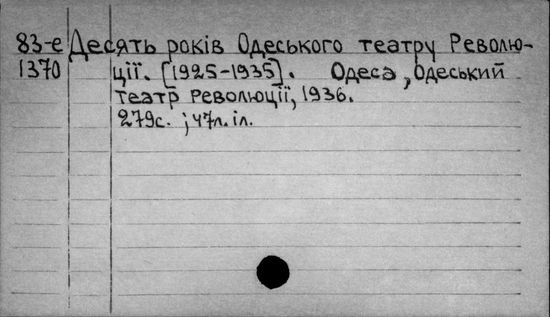 83-е Десять років Одеського театру Револю-
1370 ції. [1925-1935]. Одеса, Одеський
театр Революції, 1936.
279с. ; 47л. іл.